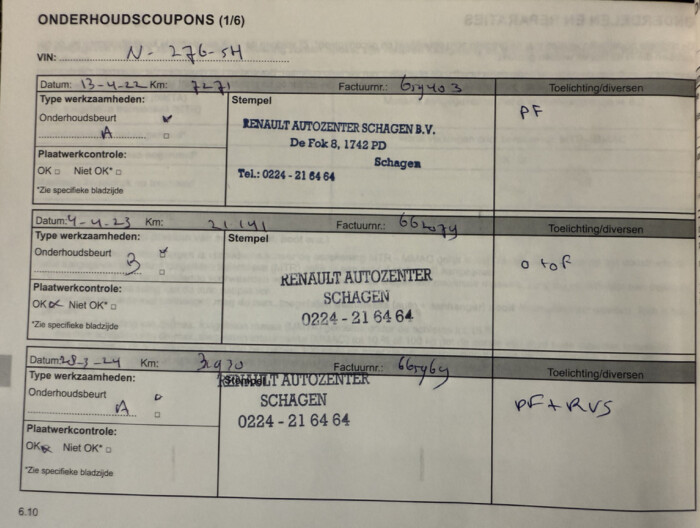 ONDERHOUDSCOUPONS (1/6)
VIN: N-276-SH
Datum: 13-4-22 Km: 7271 Factuurnr.: Toelichting/diversen
Type werkzaamheden: Stempel PF
Onderhoudsbeurt
A
RENAULT AUTOZENTER SCHAGEN B.V.
De Fok 8, 1742 PD
Schagen
Tel.: 0224 - 21 64 64
Plaatwerkcontrole:
OK □ Niet OK* □
*Zie specifieke bladzijde
Datum: 4-4-23 Km: 21.141 Factuurnr.: Toelichting/diversen
Type werkzaamheden: Stempel
Onderhoudsbeurt
B
RENAULT AUTOZENTER
SCHAGEN
0224 - 21 64 64
Plaatwerkcontrole:
OK Niet OK* □
*Zie specifieke bladzijde
Datum: 28-3-24 Km: Factuurnr.: Toelichting/diversen
Type werkzaamheden: Stempel PF + RVS
Onderhoudsbeurt
A
RENAULT AUTOZENTER
SCHAGEN
0224 - 21 64 64
Plaatwerkcontrole:
OK Niet OK* □
*Zie specifieke bladzijde
6.10